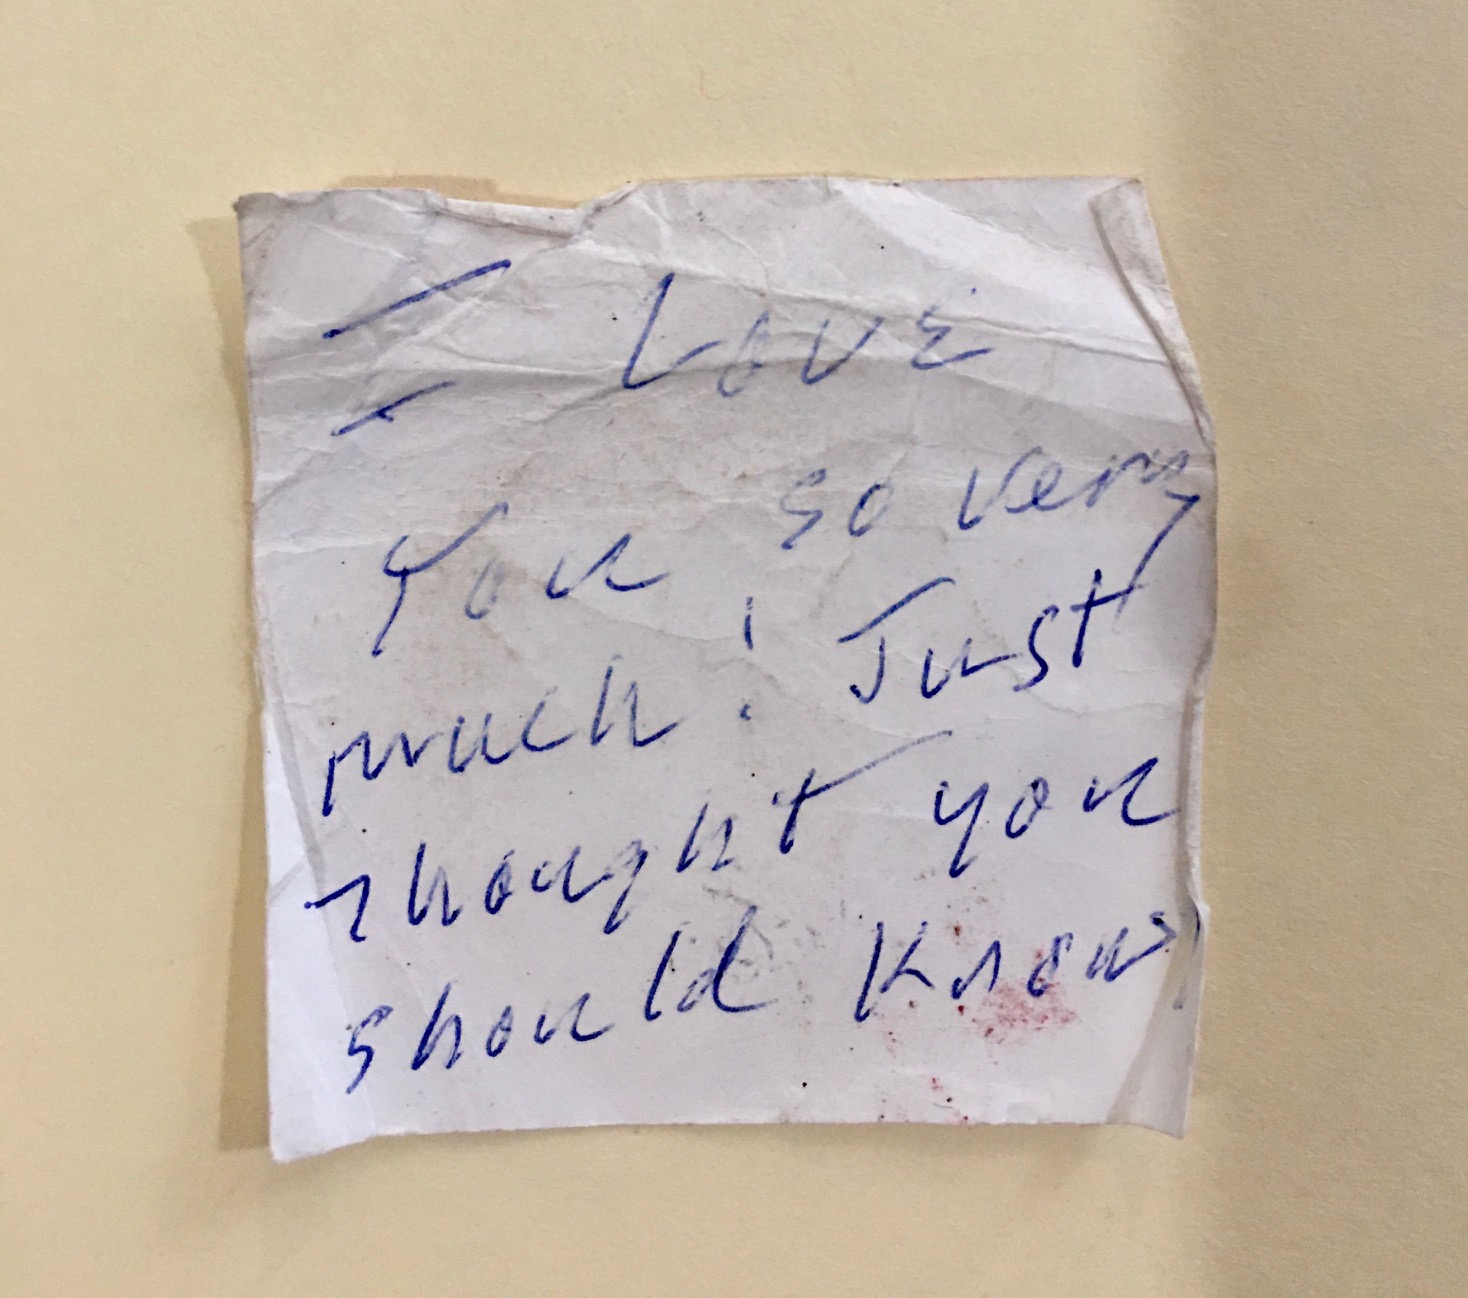 I Love
You so very
much! Just
thought you
should know